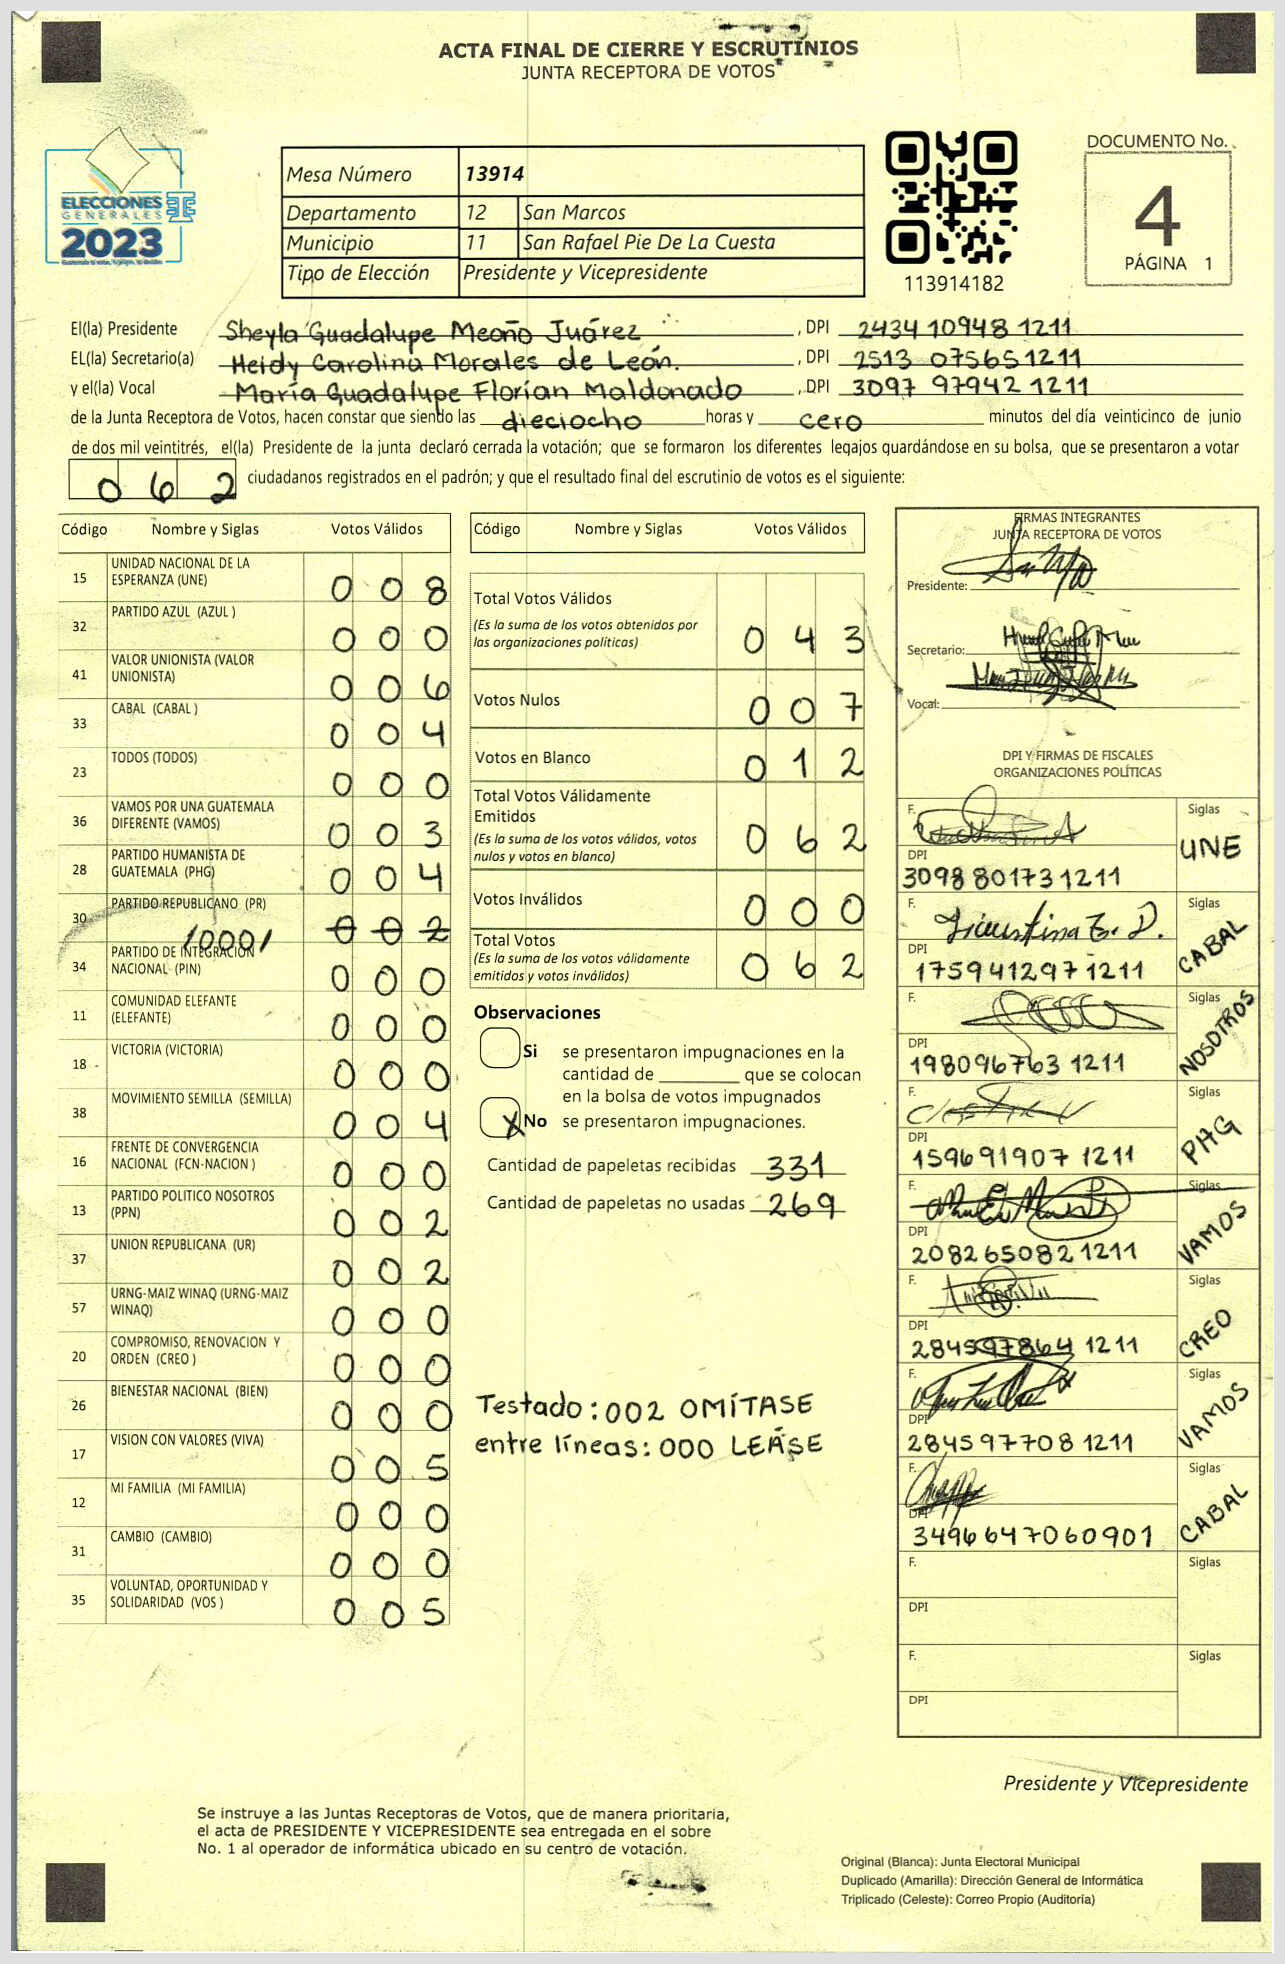 ACTA FINAL DE CIERRE Y ESCRUTINIOS
JUNTA RECEPTORA DE VOTOS
ELECCIONES
GENERALES
2023
Mesa Número 13914
Departamento 12 San Marcos
Municipio 11 San Rafael Pie De La Cuesta
Tipo de Elección Presidente y Vicepresidente
113914182
DOCUMENTO No.
4
PÁGINA 1
El(la) Presidente Sheyla Guadalupe Meoño Juárez, DPI 2434 10948 1211
EL(la) Secretario(a) Heidy Carolina Morales de León., DPI 2513 07565 1211
y el(la) Vocal María Guadalupe Florían Maldonado, DPI 3097 97942 1211
de la Junta Receptora de Votos, hacen constar que siendo las dieciocho horas y cero minutos del día veinticinco de junio
de dos mil veintitrés, el(la) Presidente de la junta declaró cerrada la votación; que se formaron los diferentes legajos guardándose en su bolsa, que se presentaron a votar
062 ciudadanos registrados en el padrón; y que el resultado final del escrutinio de votos es el siguiente:
Código Nombre y Siglas Votos Válidos
15 UNIDAD NACIONAL DE LA ESPERANZA (UNE) 008
32 PARTIDO AZUL (AZUL ) 000
41 VALOR UNIONISTA (VALOR UNIONISTA) 006
33 CABAL (CABAL ) 004
23 TODOS (TODOS) 000
36 VAMOS POR UNA GUATEMALA DIFERENTE (VAMOS) 003
28 PARTIDO HUMANISTA DE GUATEMALA (PHG) 004
30 PARTIDO REPUBLICANO (PR) 002
34 PARTIDO DE INTEGRACION NACIONAL (PIN) 000
11 COMUNIDAD ELEFANTE (ELEFANTE) 000
18 VICTORIA (VICTORIA) 000
38 MOVIMIENTO SEMILLA (SEMILLA) 004
16 FRENTE DE CONVERGENCIA NACIONAL (FCN-NACION ) 000
13 PARTIDO POLITICO NOSOTROS (PPN) 002
37 UNION REPUBLICANA (UR) 002
57 URNG-MAIZ WINAQ (URNG-MAIZ WINAQ) 000
20 COMPROMISO, RENOVACION Y ORDEN (CREO ) 000
26 BIENESTAR NACIONAL (BIEN) 000
17 VISION CON VALORES (VIVA) 005
12 MI FAMILIA (MI FAMILIA) 000
31 CAMBIO (CAMBIO) 000
35 VOLUNTAD, OPORTUNIDAD Y SOLIDARIDAD (VOS ) 005
Código Nombre y Siglas Votos Válidos
Total Votos Válidos 043
(Es la suma de los votos obtenidos por
las organizaciones políticas)
Votos Nulos 007
Votos en Blanco 012
Total Votos Válidamente
Emitidos 062
(Es la suma de los votos válidos, votos
nulos y votos en blanco)
Votos Inválidos 000
Total Votos 062
(Es la suma de los votos válidamente
emitidos y votos inválidos)
Observaciones
Si se presentaron impugnaciones en la
cantidad de ________ que se colocan
en la bolsa de votos impugnados
X No se presentaron impugnaciones.
Cantidad de papeletas recibidas 331
Cantidad de papeletas no usadas 269
Testado: 002 OMÍTASE
entre líneas: 000 LEÁSE
FIRMAS INTEGRANTES
JUNTA RECEPTORA DE VOTOS
Presidente:
Secretario:
Vocal:
DPI Y FIRMAS DE FISCALES
ORGANIZACIONES POLÍTICAS
F. Siglas UNE
DPI 3098 80173 1211
F. Siglas CABAL
DPI 175941297 1211
F. Siglas NOSOTROS
DPI 198096763 1211
F. Siglas PHG
DPI 159691907 1211
F. Siglas VAMOS
DPI 208265082 1211
F. Siglas CREO
DPI 284597864 1211
F. Siglas VAMOS
DPI 284597708 1211
F. Siglas CABAL
DPI 3496647060901
F. Siglas
DPI
F. Siglas
DPI
Presidente y Vicepresidente
Se instruye a las Juntas Receptoras de Votos, que de manera prioritaria,
el acta de PRESIDENTE Y VICEPRESIDENTE sea entregada en el sobre
No. 1 al operador de informática ubicado en su centro de votación.
Original (Blanca): Junta Electoral Municipal
Duplicado (Amarilla): Dirección General de Informática
Triplicado (Celeste): Correo Propio (Auditoría)